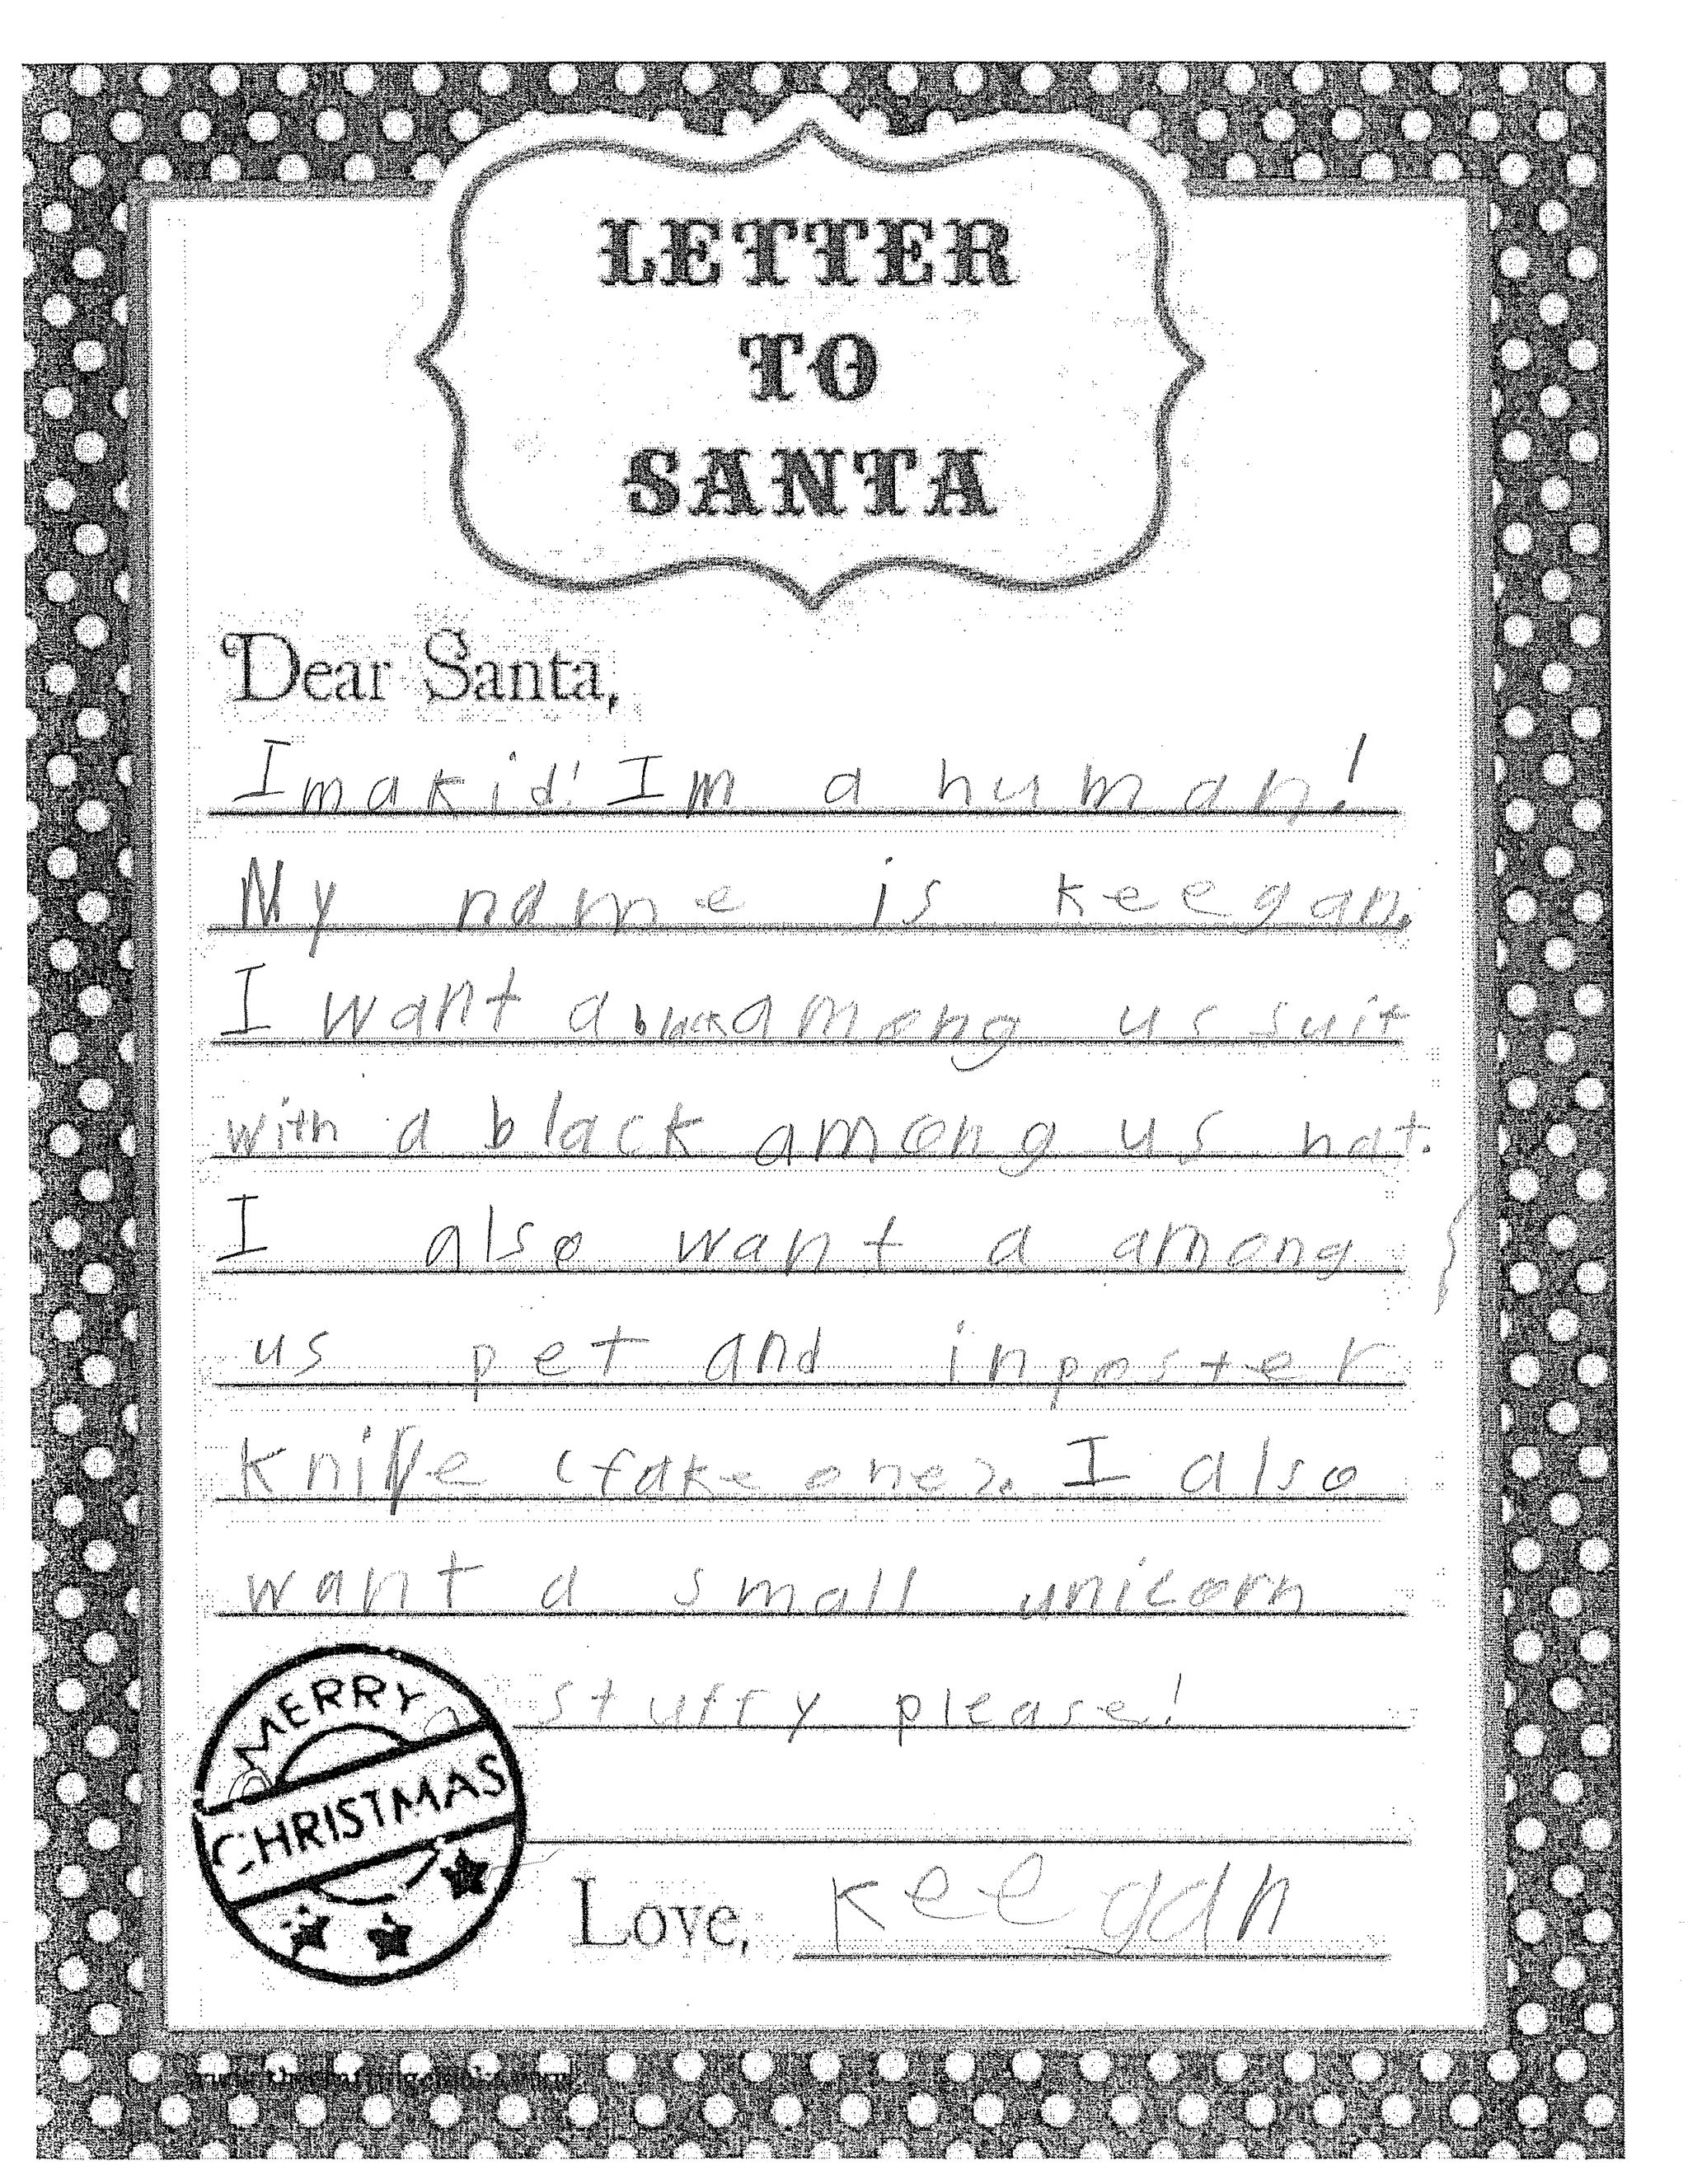 LETTER
TO
SANTA
Dear Santa,
Im a kid! Im a human!
My name is keegan.
I want a black among us suit
with a black among us hat.
I also want a among
us pet and inposter
knife (fake one). I also
want a small unicorn
stuffy please!
MERRY
CHRISTMAS
Love, keegan